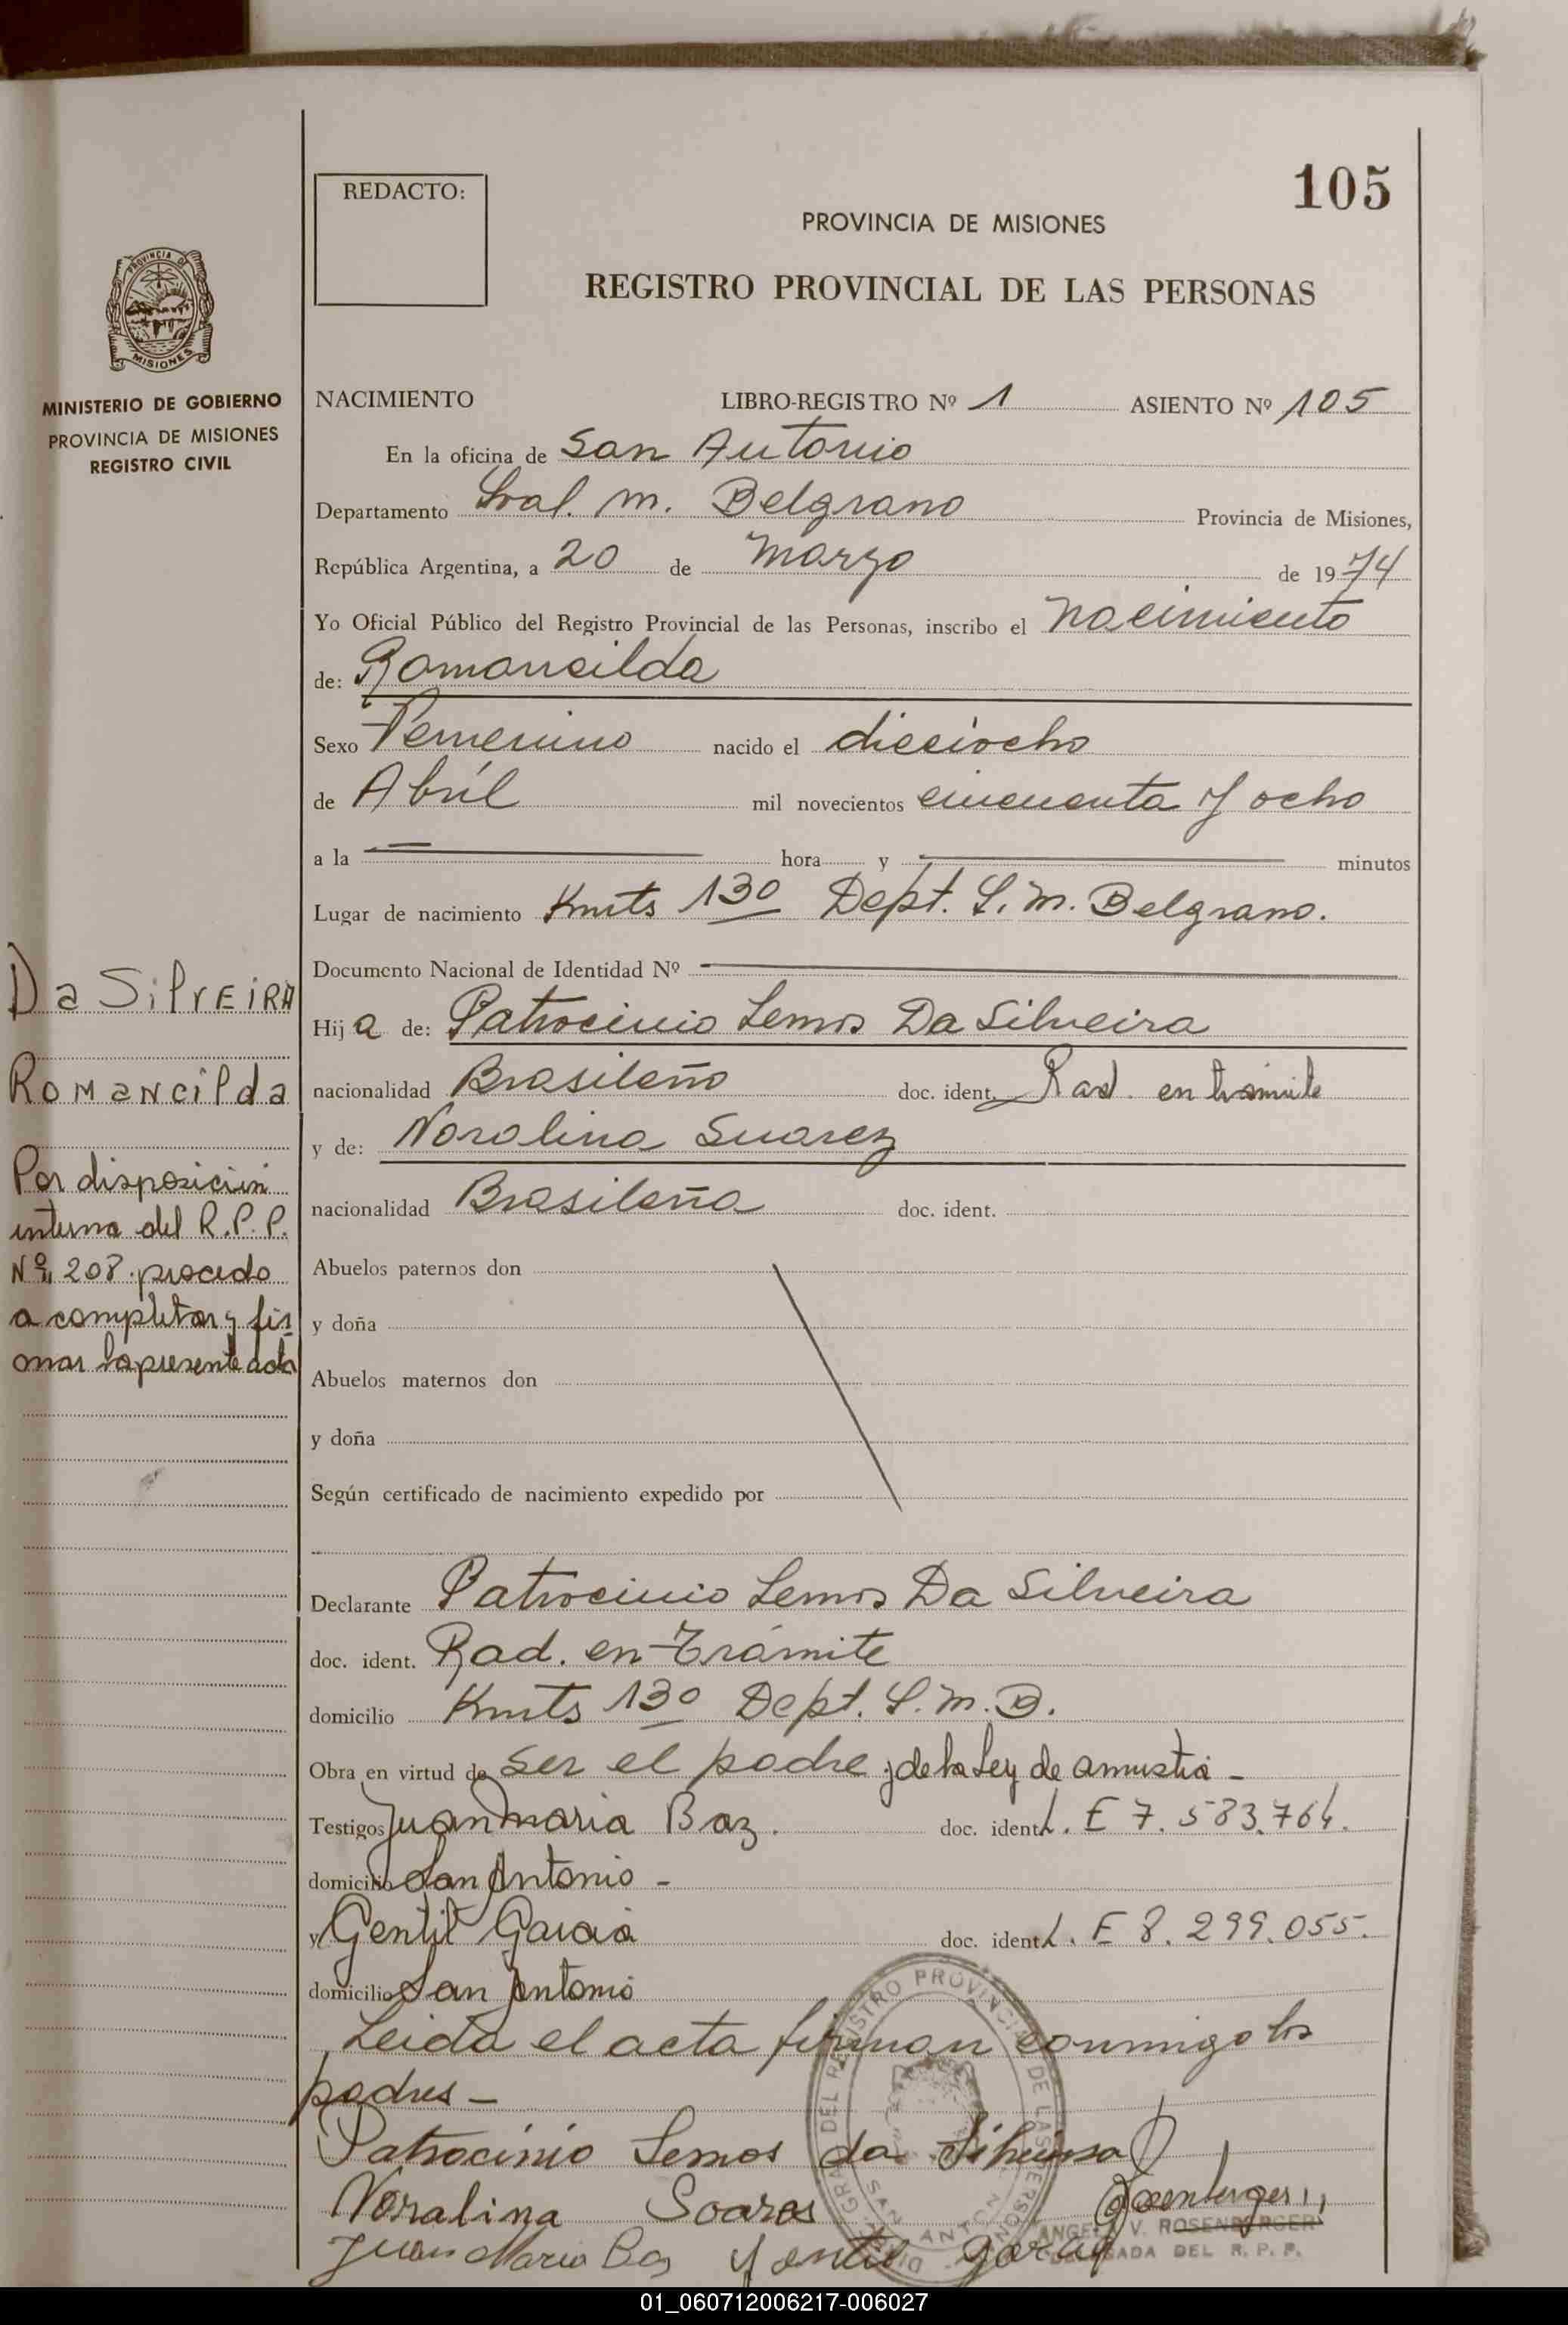 105
REDACTO:
PROVINCIA DE MISIONES
REGISTRO PROVINCIAL DE LAS PERSONAS
PROVINCIA DE
MISIONES
MINISTERIO DE GOBIERNO
PROVINCIA DE MISIONES
REGISTRO CIVIL
NACIMIENTO LIBRO-REGISTRO Nº 1 ASIENTO Nº 105
En la oficina de San Antonio
Departamento Gral. M. Belgrano Provincia de Misiones,
República Argentina, a 20 de Marzo de 1974
Yo Oficial Público del Registro Provincial de las Personas, inscribo el nacimiento
de: Romancilda
Sexo Femenino nacido el dieciocho
de Abríl mil novecientos cincuenta y ocho
a la hora y minutos
Lugar de nacimiento Kmts 130 Dept. G. M. Belgrano.
Documento Nacional de Identidad Nº
Hija de: Patrocinio Lemos Da Silveira
nacionalidad Brasileño doc. ident. Rad. en trámite
y de: Noralina Suarez
nacionalidad Brasileña doc. ident.
Abuelos paternos don
y doña
Abuelos maternos don
y doña
Según certificado de nacimiento expedido por
Declarante Patrocinio Lemos Da Silveira
doc. ident. Rad. en Trámite
domicilio Kmts 130 Dept. G. M. B.
Obra en virtud de ser el padre y de la Ley de amnistia -
Testigos Juan Maria Baz. doc. ident. L. E 7.583.764.
domicilio San Antonio -
y Gentil Garcia doc. ident. L. E 8.299.055.
domicilio San Antonio
Leida el acta firman conmigo los
padres -
Patrocinio Lemos da Silveira
Noralina Soares
Juan Maria Baz Gentil
ANGELA V. ROSENBERGER
DELEGADA DEL R. P. P.
Da SilvEiRA
RomaNcilda
Por disposición
interna del R.P.P.
Nº 208 procedo
a completar y fir
mar la presente acta
01_060712006217-006027